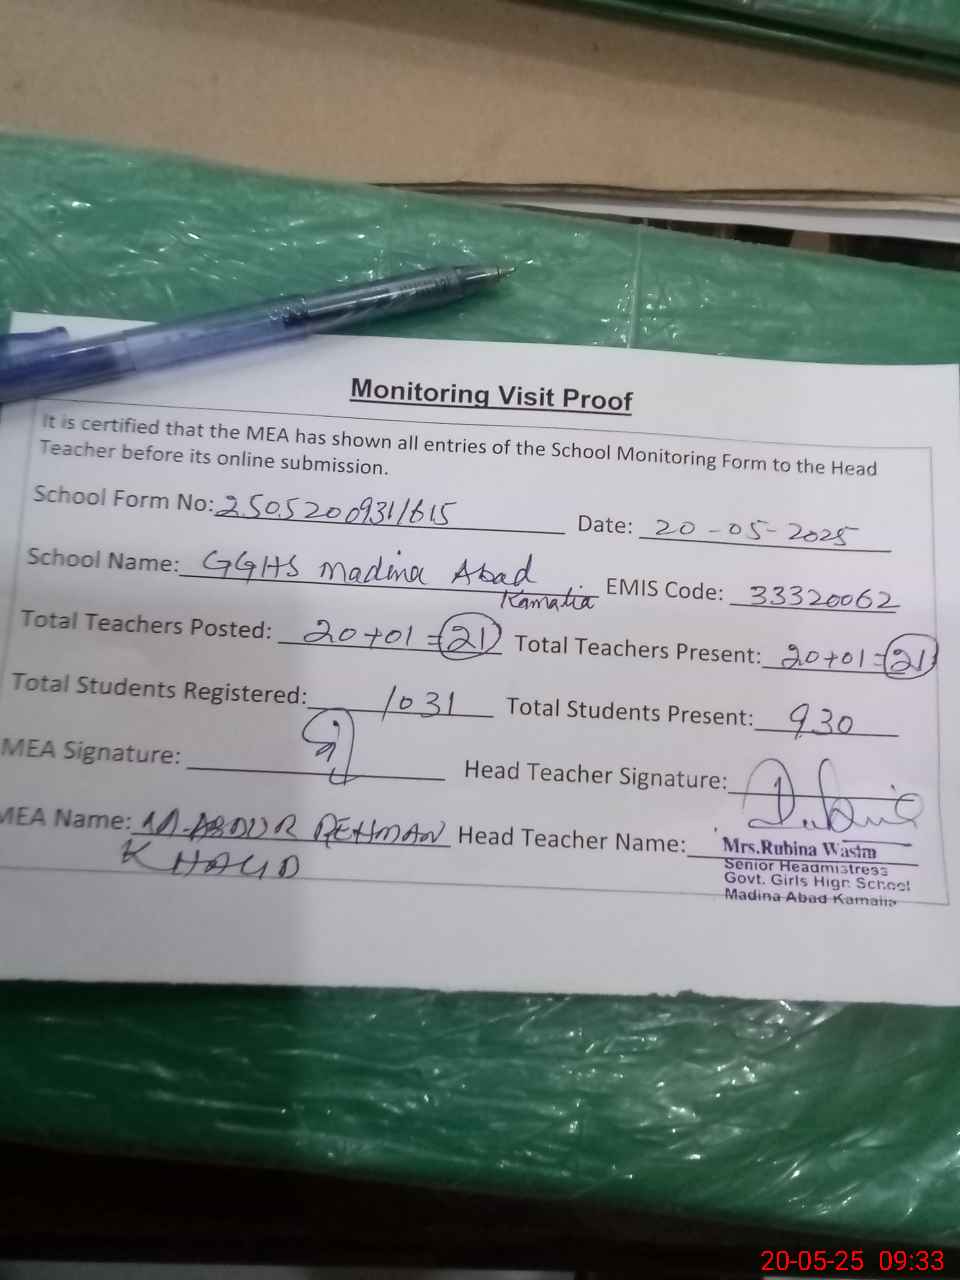 Monitoring Visit Proof
It is certified that the MEA has shown all entries of the School Monitoring Form to the Head
Teacher before its online submission.
School Form No: 2505200931/615 Date: 20-05-2025
School Name: GGHS Madina Abad Kamalia EMIS Code: 33320062
Total Teachers Posted: 20+01=21 Total Teachers Present: 20+01=21
Total Students Registered: 1031 Total Students Present: 930
MEA Signature: Head Teacher Signature:
MEA Name: M.ABDUR REHMAN Head Teacher Name:
KHALID
Mrs.Rubina Wasim
Senior Headmistress
Govt. Girls High School
Madina Abad Kamalia
20-05-25 09:33